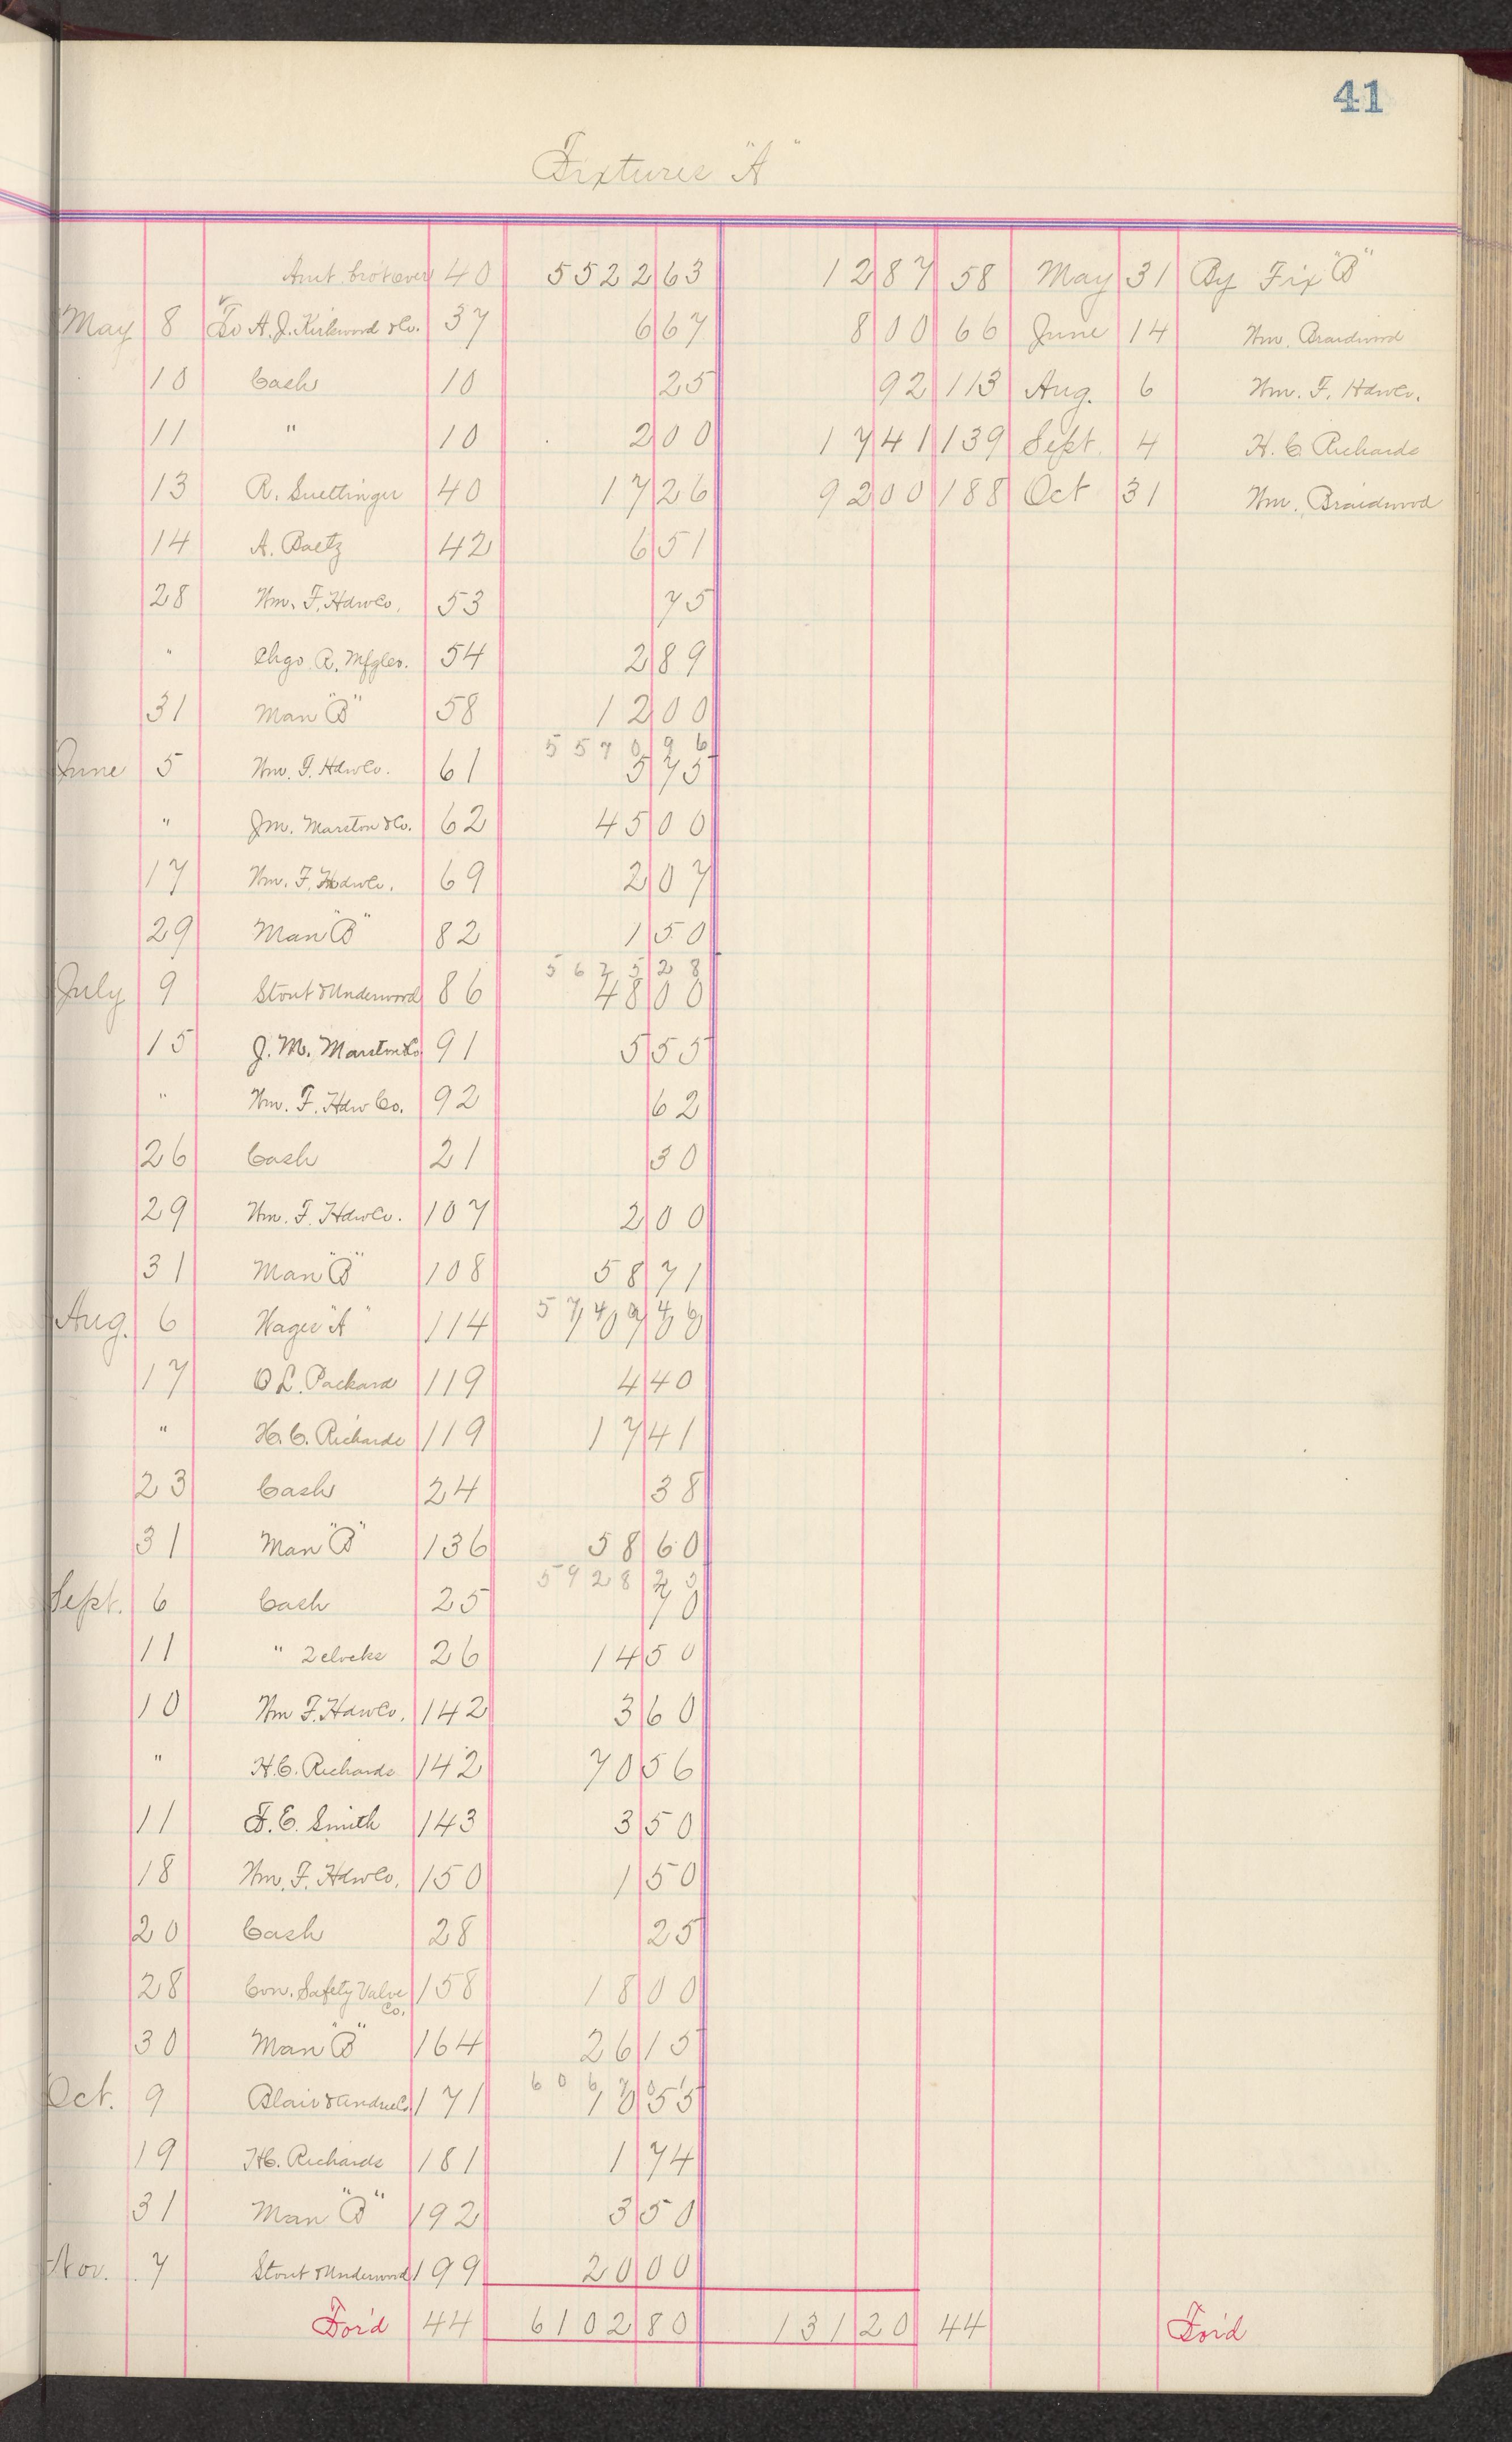 41
Fixtures "A"
Amt. bro't over 40 5522 63 12 87 58 May 31 By Fix "B"
May 8 To A. J. Kirkwood & Co. 37 6 67 8 00 66 June 14 Wm. Braidwood
10 Cash 10 25 92 113 Aug. 6 Wm. F. Hdw Co.
11 " 10 2 00 17 41 139 Sept. 4 H. C. Richards
13 R. Suettinger 40 17 26 92 00 188 Oct 31 Wm. Braidwood
14 A. Baetz 42 6 51
28 Wm. F. Hdw Co. 53 75
" Chgo R. Mfg Co. 54 2 89
31 Man "B" 58 12 00
5570 96
June 5 Wm. F. Hdw Co. 61 5 75
" J m. Marston & Co. 62 45 00
17 Wm. F. Hdw Co. 69 2 07
29 Man "B" 82 1 50
5625 28
July 9 Stout & Underwood 86 48 00
15 J. M. Marston & Co 91 5 55
" Wm. F. Hdw Co. 92 62
26 Cash 21 30
29 Wm. F. Hdw Co. 107 2 00
31 Man "B" 108 58 71
5740 46
Aug. 6 Wages "A" 114 107 00
17 O L. Packard 119 4 40
" H. C. Richards 119 17 41
23 Cash 24 38
31 Man "B" 136 58 60
5928 25
Sept. 6 Cash 25 70
11 " 2 clocks 26 14 50
10 Wm F. Hdw Co. 142 3 60
" H. C. Richards 142 70 56
11 F. E. Smith 143 3 50
18 Wm. F. Hdw Co. 150 1 50
20 Cash 28 25
28 Con. Safety Valve Co. 158 18 00
30 Man "B" 164 26 15
6067 01
Oct. 9 Blair & Andree Co 171 10 55
19 H C. Richards 181 1 74
31 Man "B" 192 3 50
Nov. 7 Stout & Underwood 199 20 00
For'd 44 6102 80 131 20 44 For'd